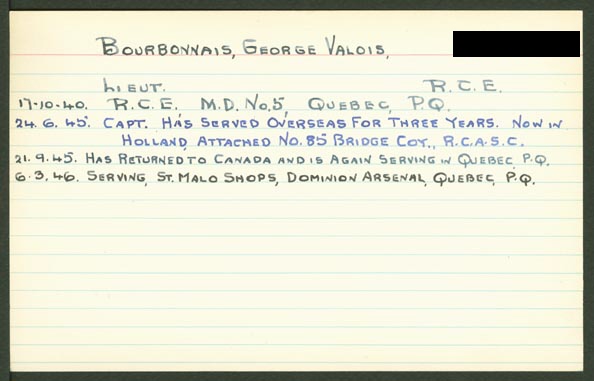 BOURBONNAIS, GEORGE VALOIS,
LIEUT. R.C.E.
17-10-40. R.C.E. M.D. No.5, QUEBEC, P.Q.
24.6.45. CAPT. HAS SERVED OVERSEAS FOR THREE YEARS. NOW IN
HOLLAND, ATTACHED No.85 BRIDGE COY., R.C.A.S.C.
21.9.45. HAS RETURNED TO CANADA AND IS AGAIN SERVING IN QUEBEC, P.Q.
6.3.46. SERVING, ST. MALO SHOPS, DOMINION ARSENAL, QUEBEC, P.Q.